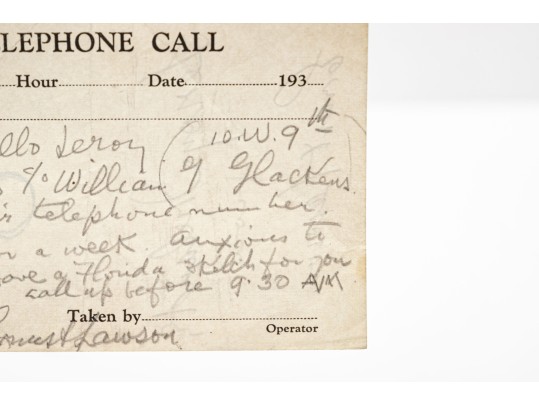 LEPHONE CALL
Hour Date 193
llo Leroy 10.W. 9th
c/o William Glackens
telephone number.
a week. Anxious to
ave a Florida sketch for you
call up before 9.30 AM
Taken by
Operator
Lawson